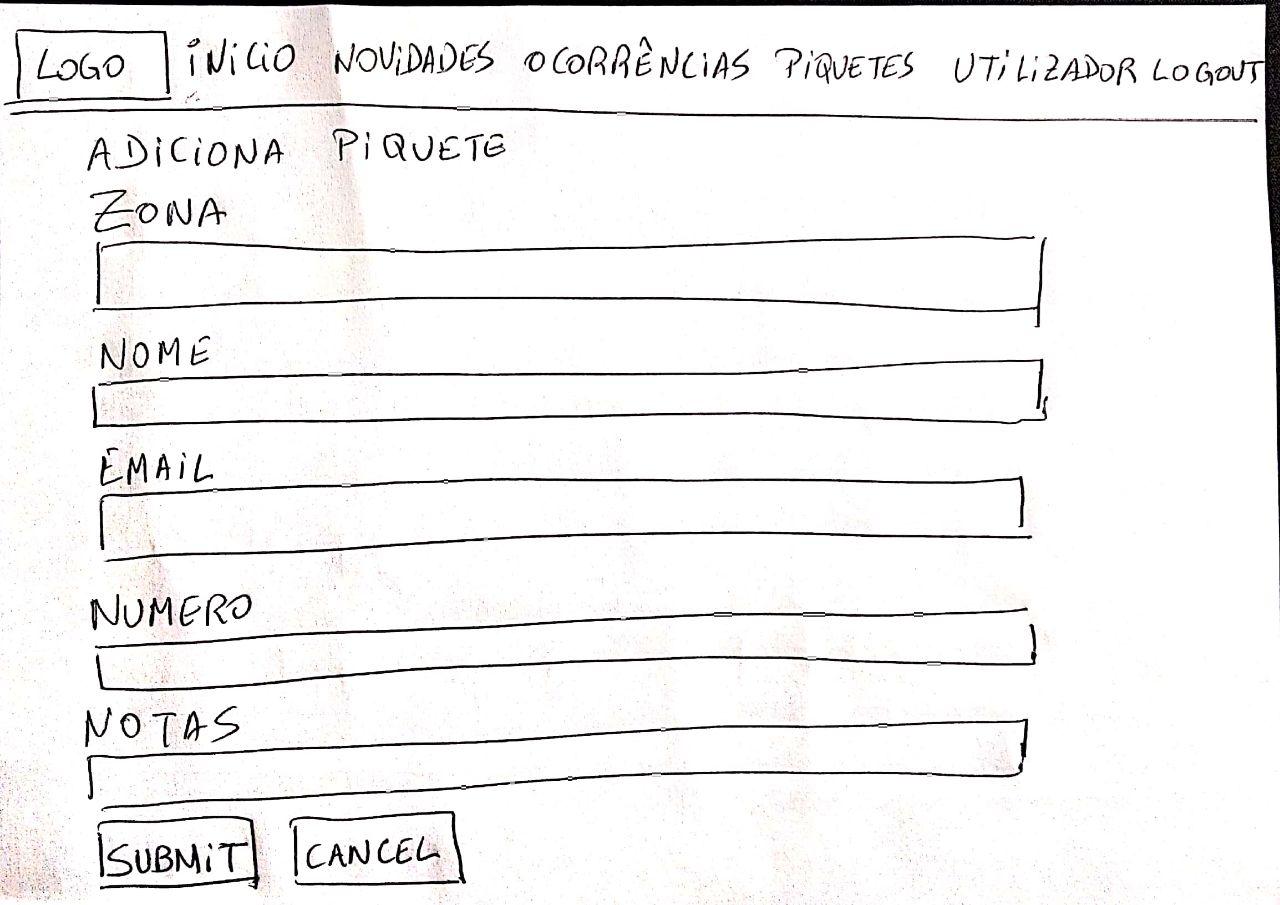 LOGO INICIO NOVIDADES OCORRÊNCIAS PIQUETES UTILIZADOR LOGOUT
ADICIONA PIQUETE
ZONA
NOME
EMAIL
NUMERO
NOTAS
SUBMIT CANCEL